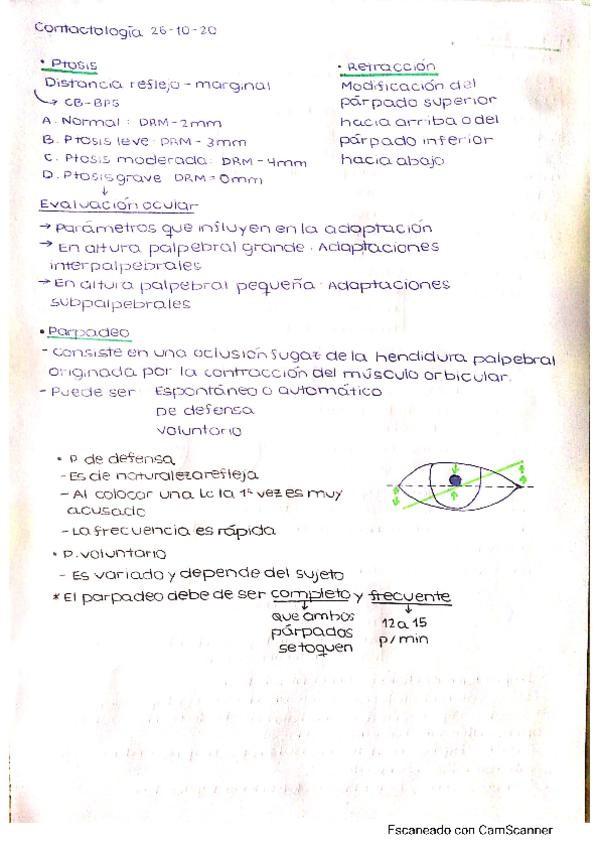 Contactología 26-10-20
• Ptosis
Distancia reflejo - marginal
↳ CB-BPS
A. Normal: DRM - 2mm
B. Ptosis leve: DRM - 3mm
C. Ptosis moderada: DRM - 4mm
D. Ptosis grave DRM = 0mm
• Retracción
Modificación del
párpado superior
hacia arriba o del
párpado inferior
hacia abajo
↓
Evaluación ocular
→ Parámetros que influyen en la adaptación
→ En altura palpebral grande · Adaptaciones
interpalpebrales
→ En altura palpebral pequeña · Adaptaciones
subpalpebrales
• Parpadeo
- Consiste en una oclusión fugaz de la hendidura palpebral
originada por la contracción del músculo orbicular.
- Puede ser Espontáneo o automático
De defensa
Voluntario
• P. de defensa
- Es de naturaleza refleja
- Al colocar una Lc la 1ª vez es muy
acusado
- La frecuencia es rápida
• P. voluntario
- Es variado y depende del sujeto
* El parpadeo debe de ser completo y frecuente
que ambos
párpados
se toquen
12 a 15
p/min
Escaneado con CamScanner